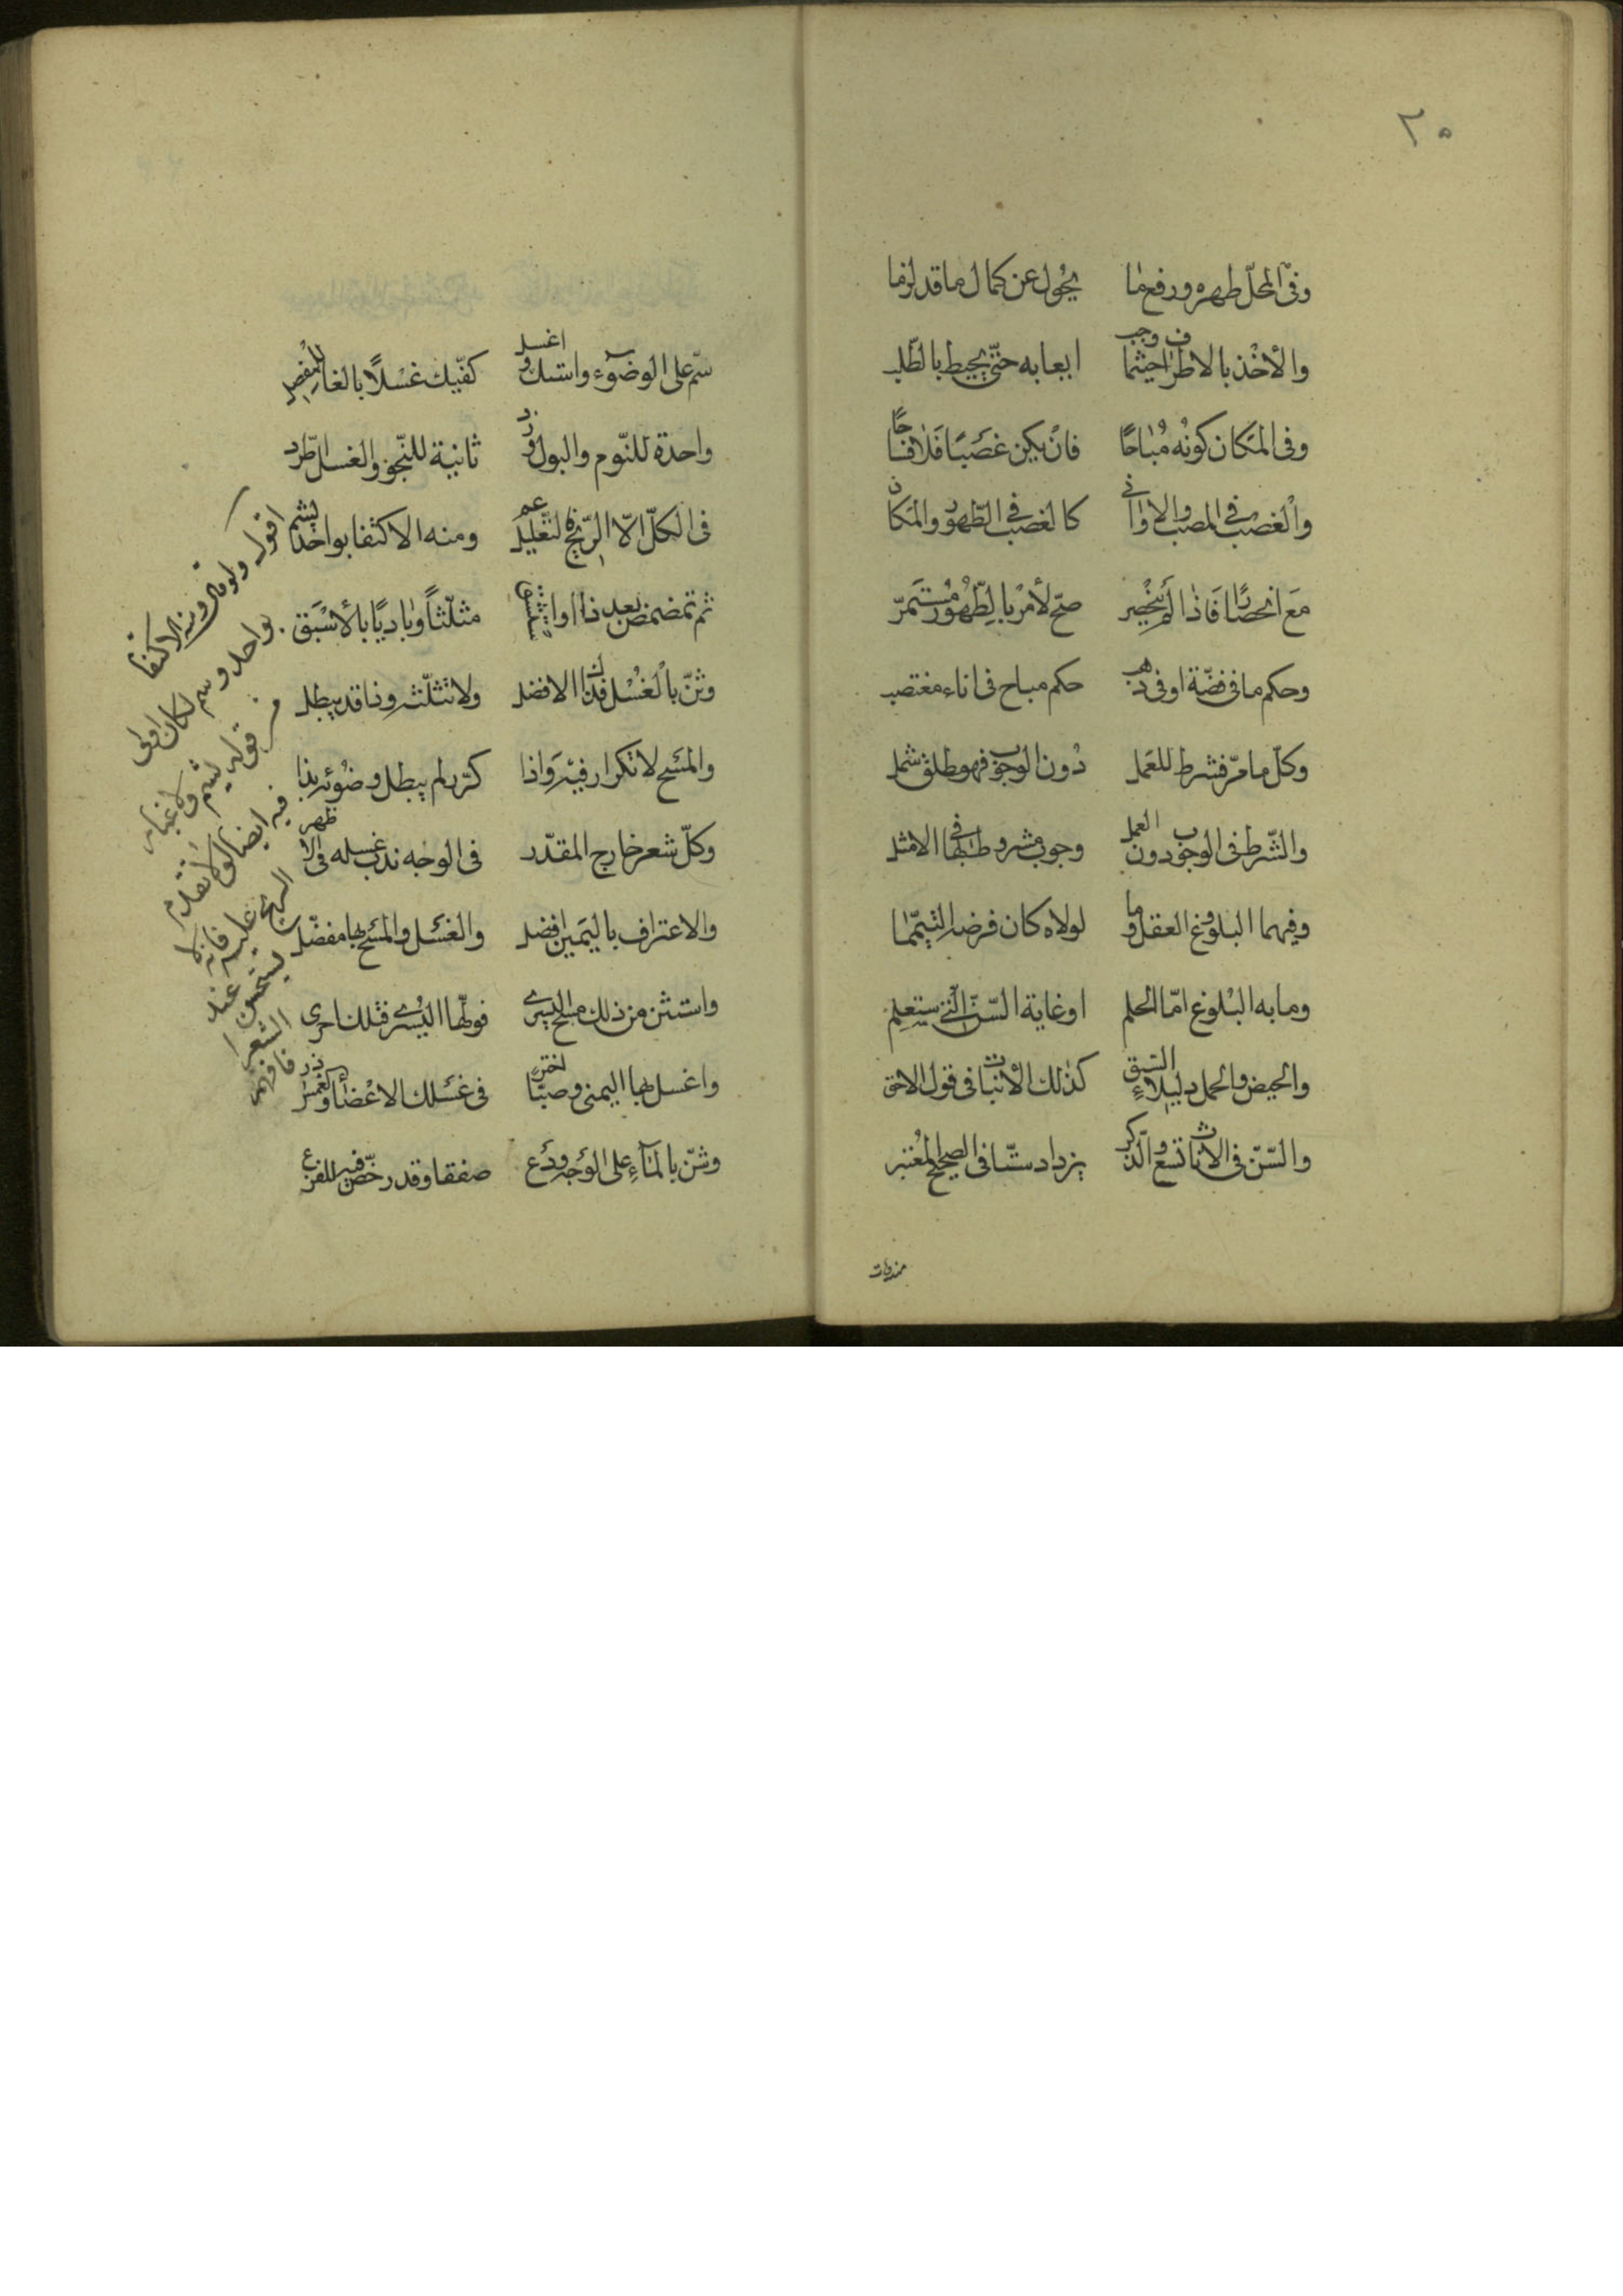 ٢٥
وفى المحلّ طهره ورفع ما يحول عن كمال ما قد لزما
والأخذ بالاطراف حيثما وجب ايعابه حتّى يحيط بالطّلب
وفى المكان كونه مُباحًا فان يكن غصبًا فلا فلاحًا
والغصب فى المصب والاوانى كالغصب فى الطّهور والمكان
مع انحصار فاذا لم ينحصر صحّ لأمر بالطّهور مستمرّ
وحكم ما فى فضّة او فى ذهب حكم مباح فى اناء مغتصب
وكلّ ما مرّ فشرط للعمل دون الوجوب فهو مطلق شمل
والشّرط فى الوجوب دون العمل وجوب مشروط بها فى الامثل
وفيهما البلوغ والعقل وما لولاه كان فرضه التيمّما
وما به البلوغ امّا الحلم او غاية السّنّ الّتى ستعلم
والحيض والحمل دليلا السّبق كذلك الأنبات فى قول الاحق
والسّنّ فى الاناث تسع والذّكر يزداد ستّا فى الصحيح المُعتبر
سمّ على الوضوء واستك واغسل كفّيك غسلاً بالغا للمفصل
واحدة للنّوم والبول وزد ثانية للنّجو والغسل اطّرد
فى الكلّ الّا الرّيح فالتّعليل عم ومنه الاكتفا بواحد يشم
ثم تمضمض بعد ذا واستنشق مثلّثاً وباديًا بالأسبق
وثنّ بالغسل فذاك الافضل ولا تثلّث وذا قد يبطل
والمسح لا تكرار فيه واذا كرّر لم يبطل وضوئه بذا
وكلّ شعر خارج المقدّر فى الوجه ندب غسله فى الاظهر
والاغتراف باليمين افضل والغسل والمسح بها مفضّل
واستثن من ذلك مسح اليسرى فولّها اليُسرى فتلك احرى
واغسل بها اليمنى وصبّا اختر فى غسلك الاعضاء والغمس ذر
وشنّ بالمآء على الوجه ودع صفقا وقد رخّص فيه للفزع
اقول ولو قال ومنه الاكتفا
بواحد وسم لكان اولى